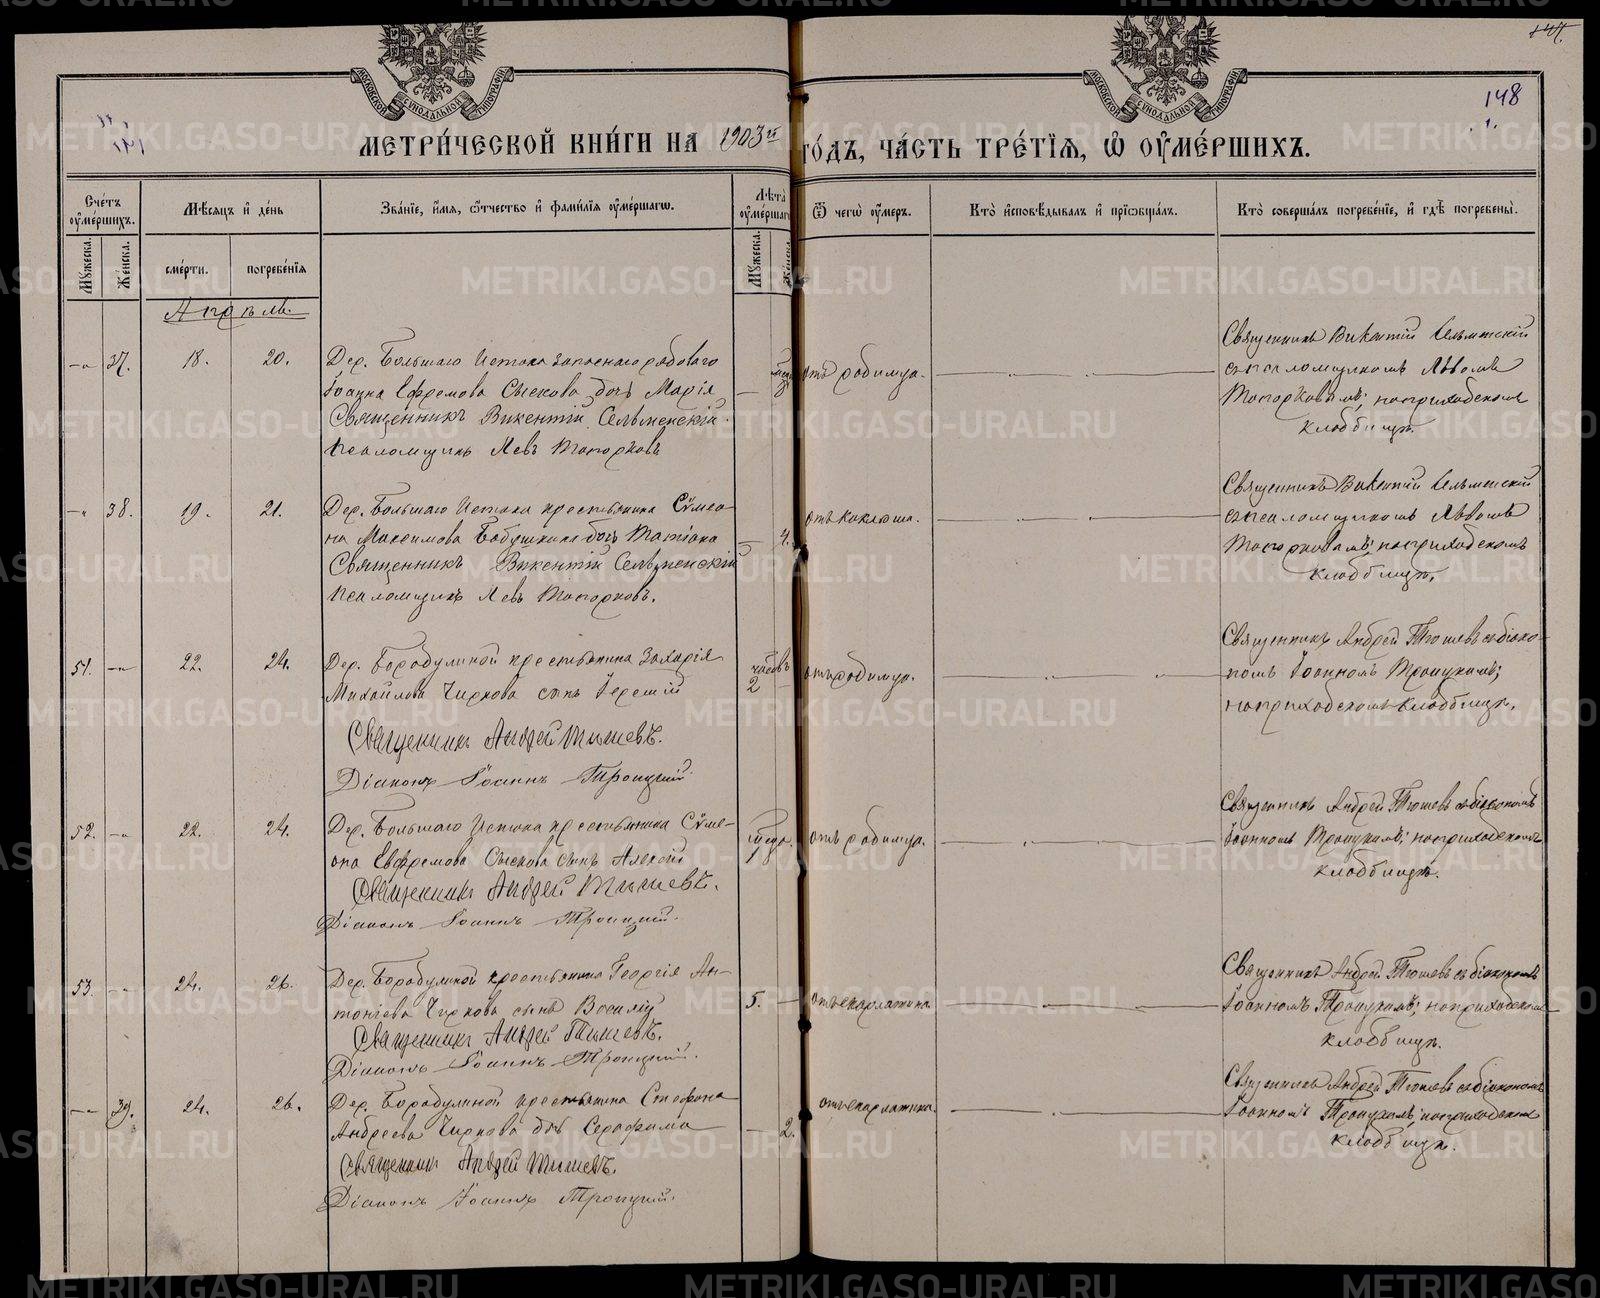 147.
148
МЕТРИ́ЧЕСКОЙ КНИ́ГИ НА 1903 й ГО́ДЪ, ЧА́СТЬ ТРЕ́ТІѦ, Ѡ ОУ҆МЕ́РШИХЪ.
Сче́тъ оу҆ме́ршихъ.
Мѣ́сяцъ и҆ де́нь
Зва́нїе, и҆́мя, ѻ҆́тчество и҆ фами́лїя оу҆ме́ршагѡ.
Лѣ́та оу҆ме́ршагѡ
Ѿ чегѡ̀ оу҆́меръ.
Кто̀ и҆сповѣ́дывалъ и҆ прїѡбща́лъ.
Кто̀ соверша́лъ погребе́нїе, и҆ гдѣ̀ погребены̀.
Му́жеска.
Же́нска.
сме́рти.
погребе́нїя
Му́жеска.
Же́нска.
Апрѣль.
37.
18.
20.
Дер. Большаго Истока запаснаго рядоваго
Іоанна Ефремова Сыскова дочь Марія
Священникъ Викентій Сельменскій
Псаломщикъ Левъ Топорковъ
отъ родимца.
Священникъ Викентій Сельменскій
съ псаломщикомъ Львомъ
Топорковымъ; на приходскомъ
кладбищѣ.
38.
19.
21.
Дер. Большаго Истока крестьянина Сѵмео-
на Максимова Бабушкина дочь Татіана
Священникъ Викентій Сельменскій
Псаломщикъ Левъ Топорковъ.
4.
отъ коклюша.
Священникъ Викентій Сельменскій
съ псаломщикомъ Львомъ
Топорковымъ; на приходскомъ
кладбищѣ.
51.
22.
24.
Дер. Бородулиной крестьянина Захарія
Михайлова Чиркова сынъ Іеремій
Священникъ Андрей Тюшевъ.
Діаконъ Іоаннъ Троицкій.
часовъ
2
отъ родимца.
Священникъ Андрей Тюшевъ съ діако-
номъ Іоанномъ Троицкимъ;
на приходскомъ кладбищѣ.
52.
22.
24.
Дер. Большаго Истока крестьянина Сѵме-
она Евфремова Сыскова сынъ Алексій
Священникъ Андрей Тюшевъ.
Діаконъ Іоаннъ Троицкій.
отъ родимца.
Священникъ Андрей Тюшевъ съ діакономъ
Іоанномъ Троицкимъ; на приходскомъ
кладбищѣ.
53.
24.
26.
Дер. Бородулиной крестьянина Георгія Ан-
тоніева Чиркова сынъ Василій
Священникъ Андрей Тюшевъ.
Діаконъ Іоаннъ Троицкій.
5.
отъ скарлатины.
Священникъ Андрей Тюшевъ съ діакономъ
Іоанномъ Троицкимъ; на приходскомъ
кладбищѣ.
39.
24.
26.
Дер. Бородулиной крестьянина Стефана
Андреева Чиркова дочь Серафима
Священникъ Андрей Тюшевъ.
Діаконъ Іоаннъ Троицкій.
2.
отъ скарлатины.
Священникъ Андрей Тюшевъ съ діакономъ
Іоанномъ Троицкимъ; на приходскомъ
кладбищѣ.
METRIKI.GASO-URAL.RU